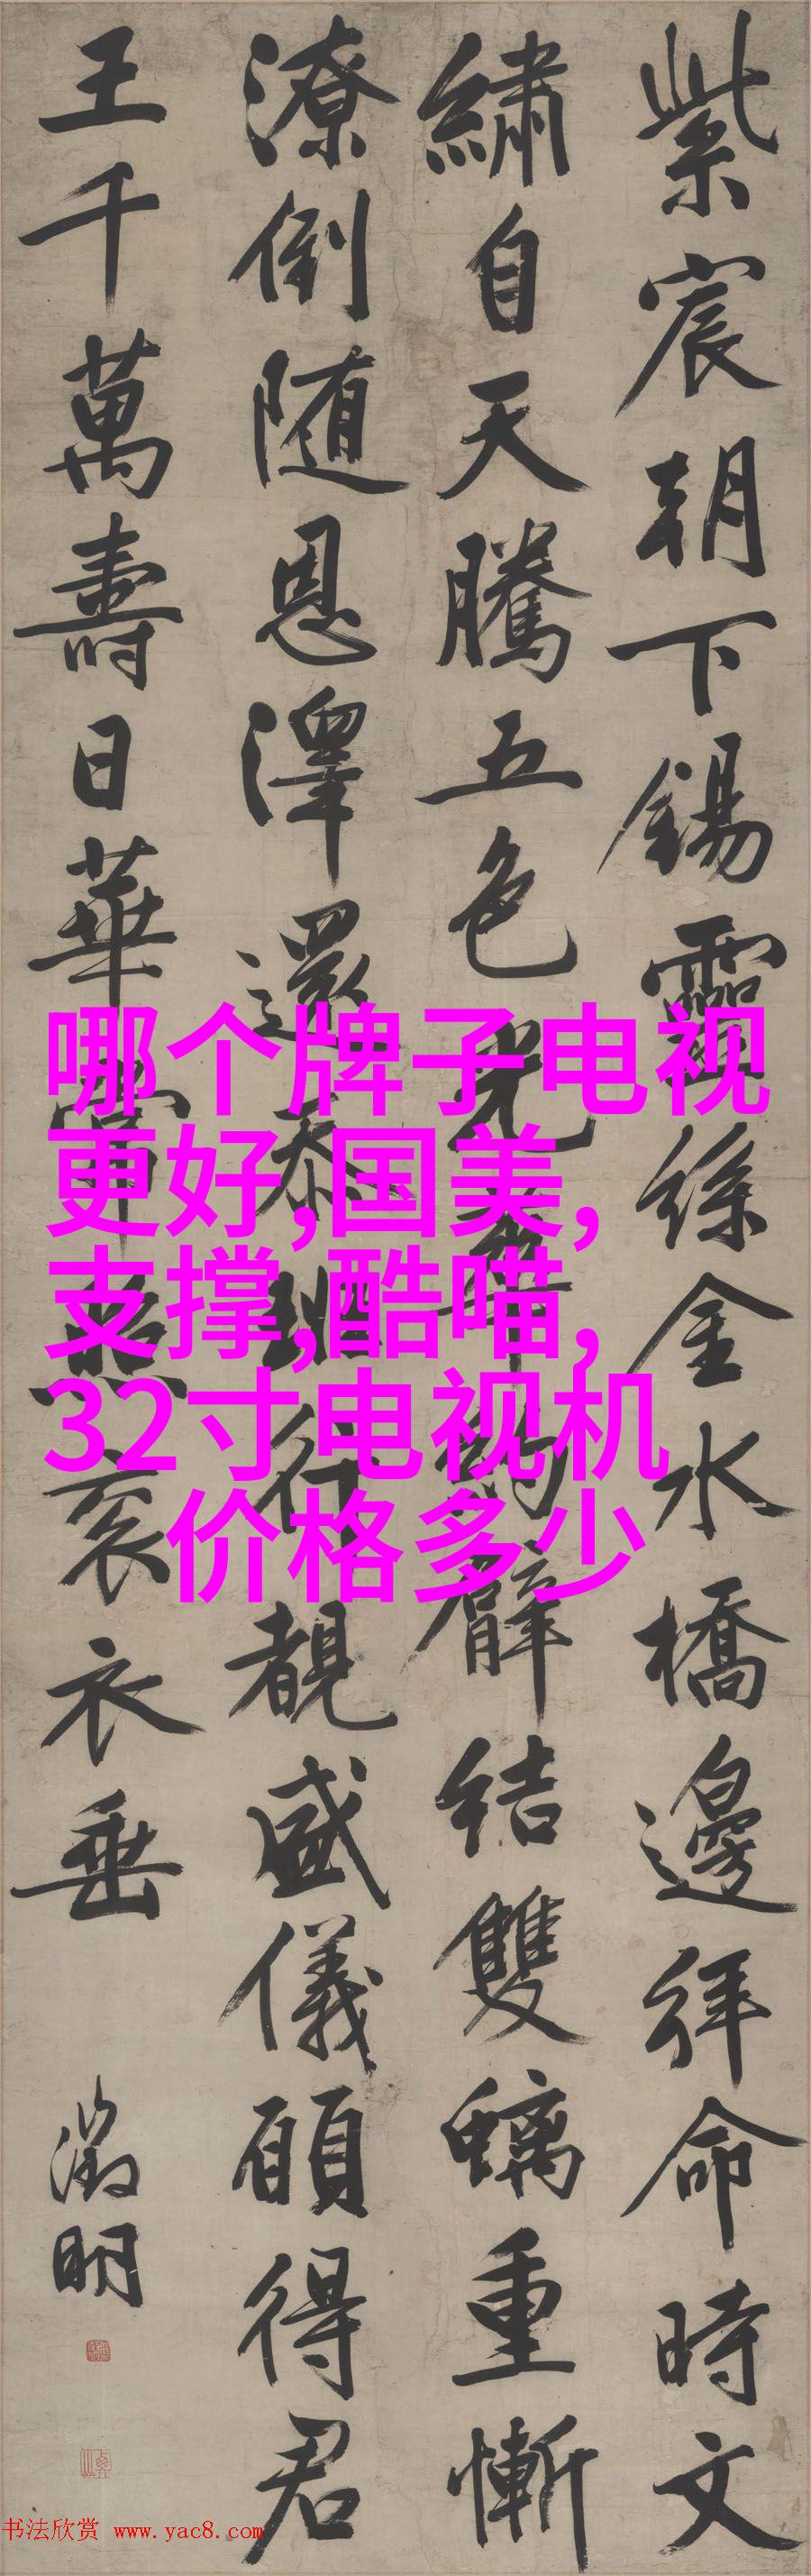 紫宸朝下錫靈絲金水橋邊拜命時文
繡自天騰五色光華約臂結雙螭重慚
潦倒隨恩澤還泰班行覩盛儀願得君
王千萬壽日華常照袞衣垂
徵明
哪个牌子电视
更好,国美,
支撑,酷喵,
32寸电视机
价格多少
书法欣赏 www.yac8.com